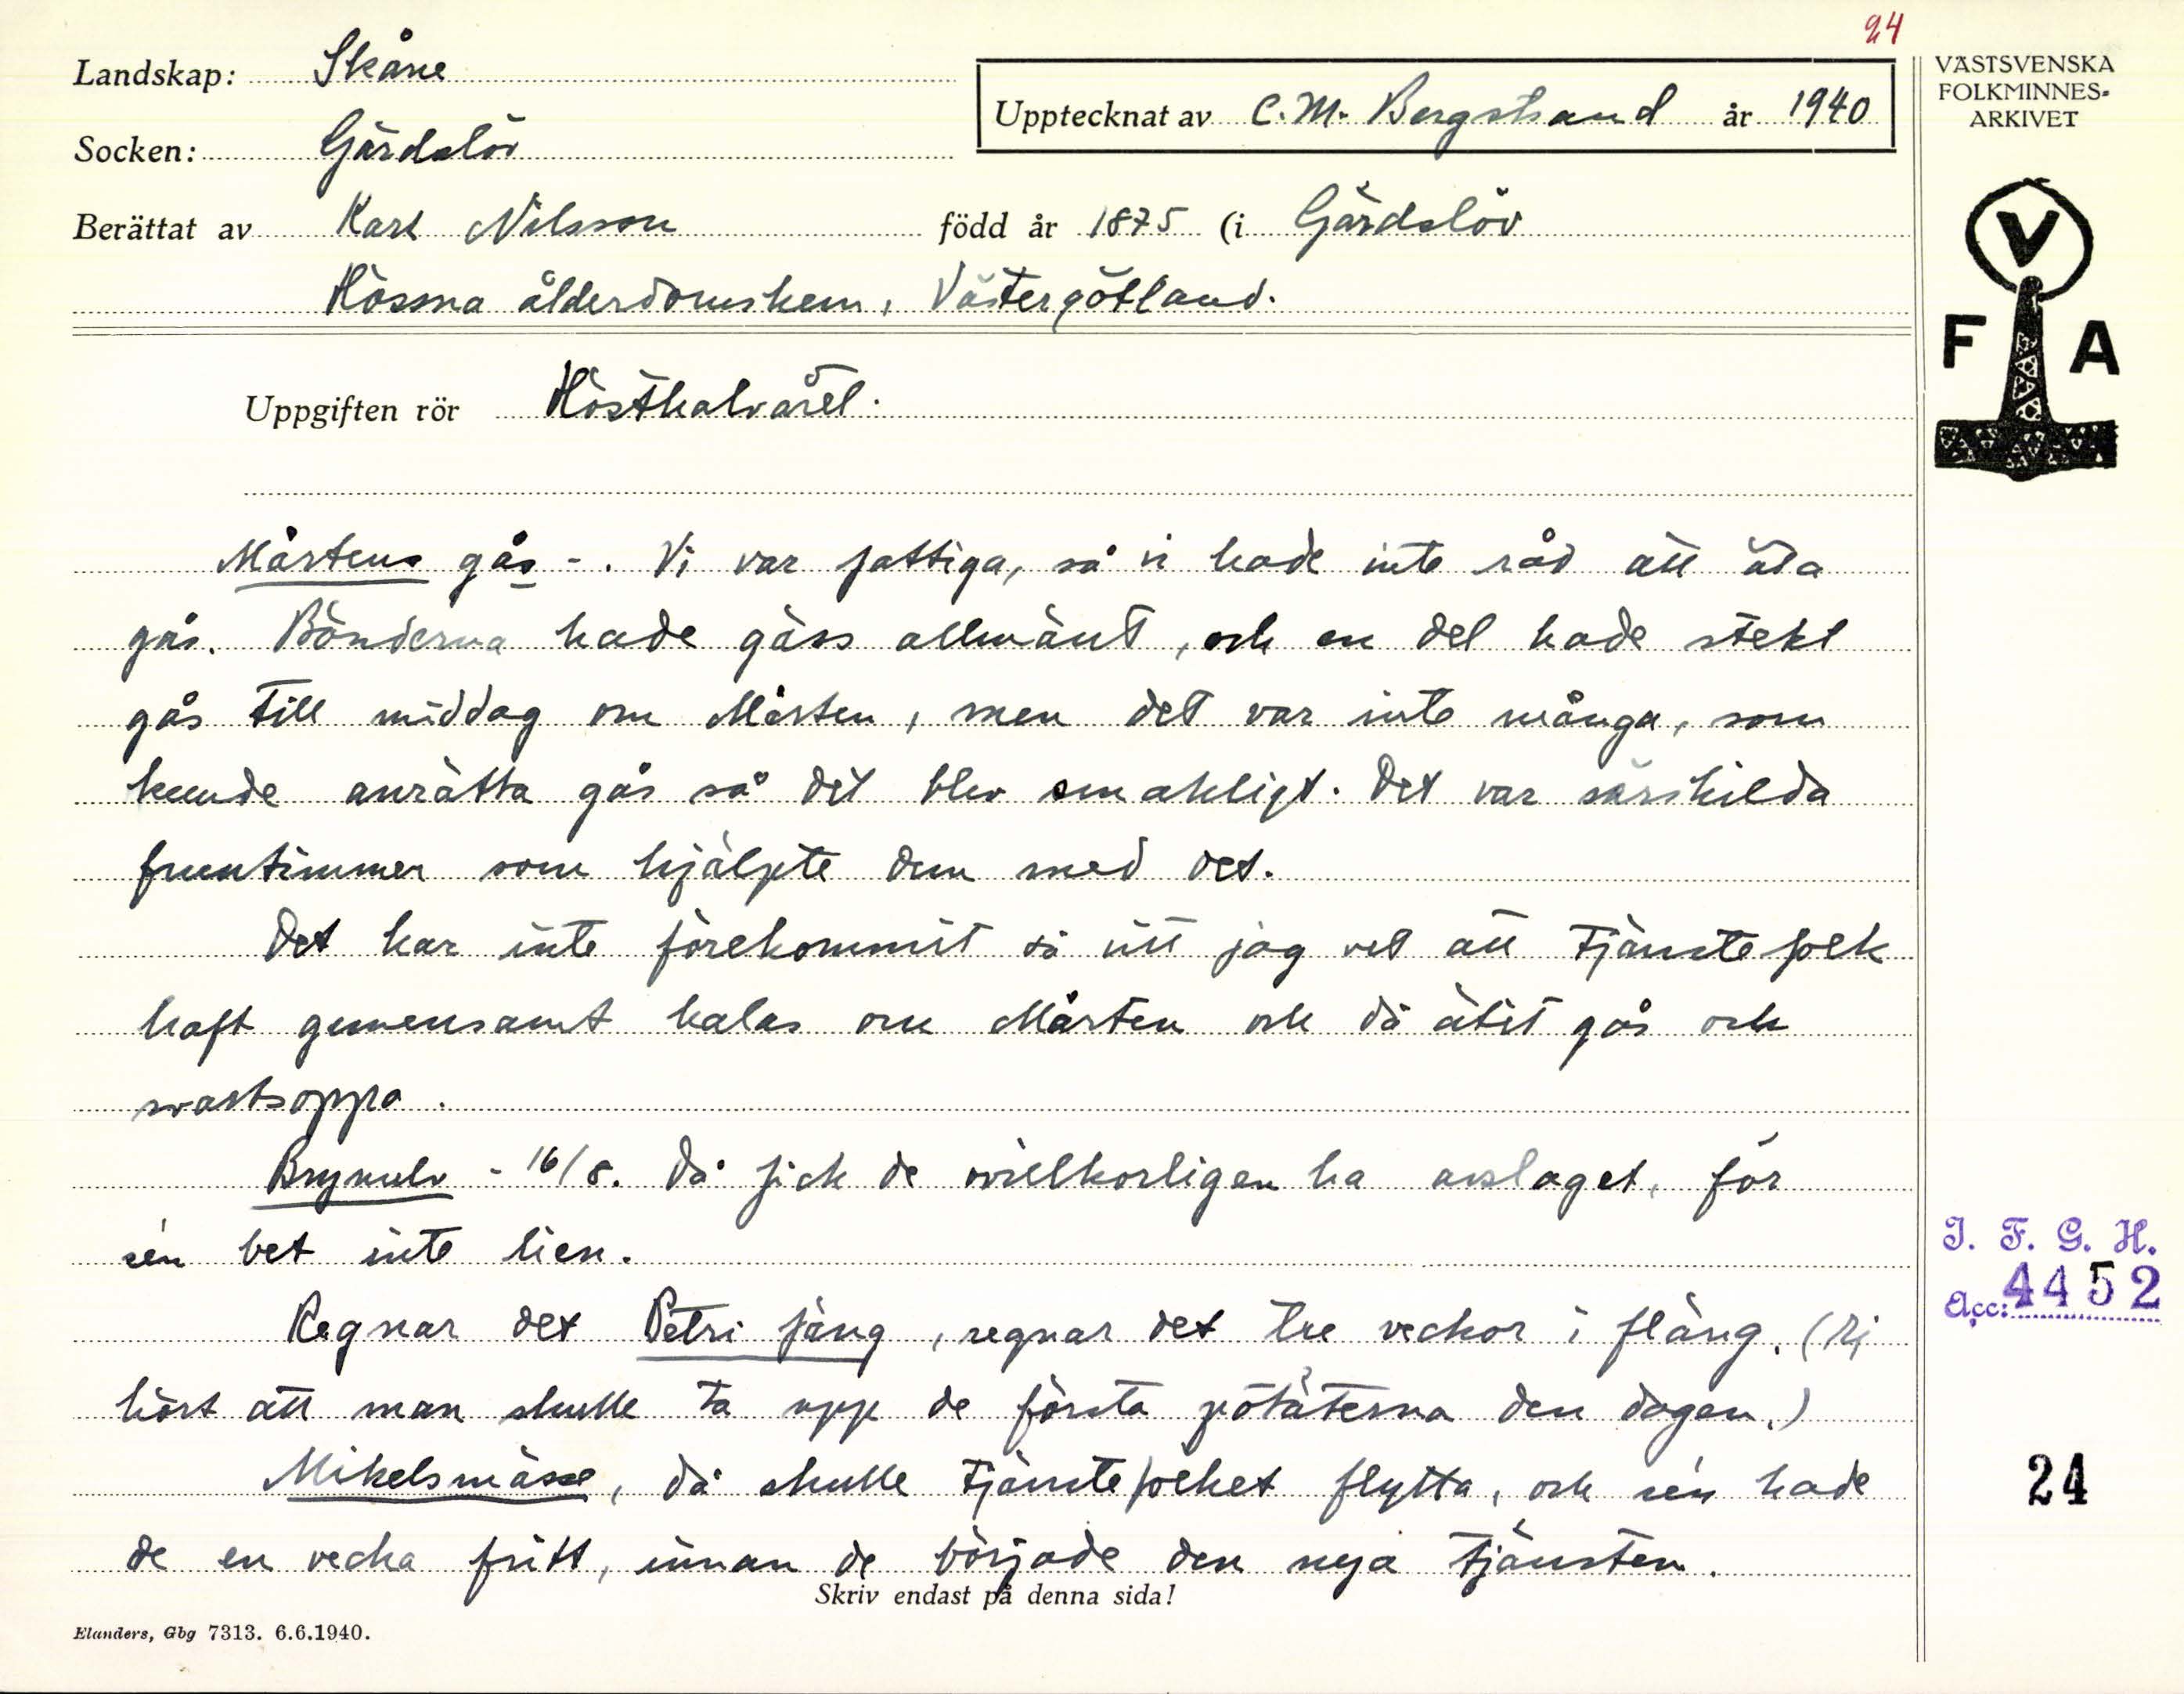 24
Landskap: Skåne
Upptecknat av C.M. Bergstrand år 1940
Socken: Gärdslöv
Berättat av Karl Nilsson född år 1875 (i Gärdslöv
Hössna ålderdomshem, Västergötland.
VÄSTSVENSKA
FOLKMINNES-
ARKIVET
V
F A
Uppgiften rör Hösthalvåret.
Mårtens gås -. Vi var fattiga, så vi hade inte råd att äta
gås. Bönderna hade gäss allmänt, och en del hade stekt
gås till middag om Mårten, men det var inte många, som
kunde anrätta gås så det blev smakligt. Det var särskilda
fruntimmer som hjälpte dem med det.
Det har inte förekommit så vitt jag vet att tjänstefolk
haft gemensamt kalas om Mårten och då ätit gås och
svartsoppa.
Brynulv - 16/8. Då fick de ovillkorligen ha avslaget, för
sén bet inte lien.
Regnar det Petri fäng, regnar det tre veckor i fläng. (Ej
hört att man skulle ta upp de första potäterna den dagen.)
Mikelsmässe, då skulle tjänstefolket flytta, och sén hade
de en vecka fritt, innan de började den nya tjänsten.
Skriv endast på denna sida!
Elanders, Gbg 7313. 6.6.1940.
I. F. G. H.
Acc: 4452
24